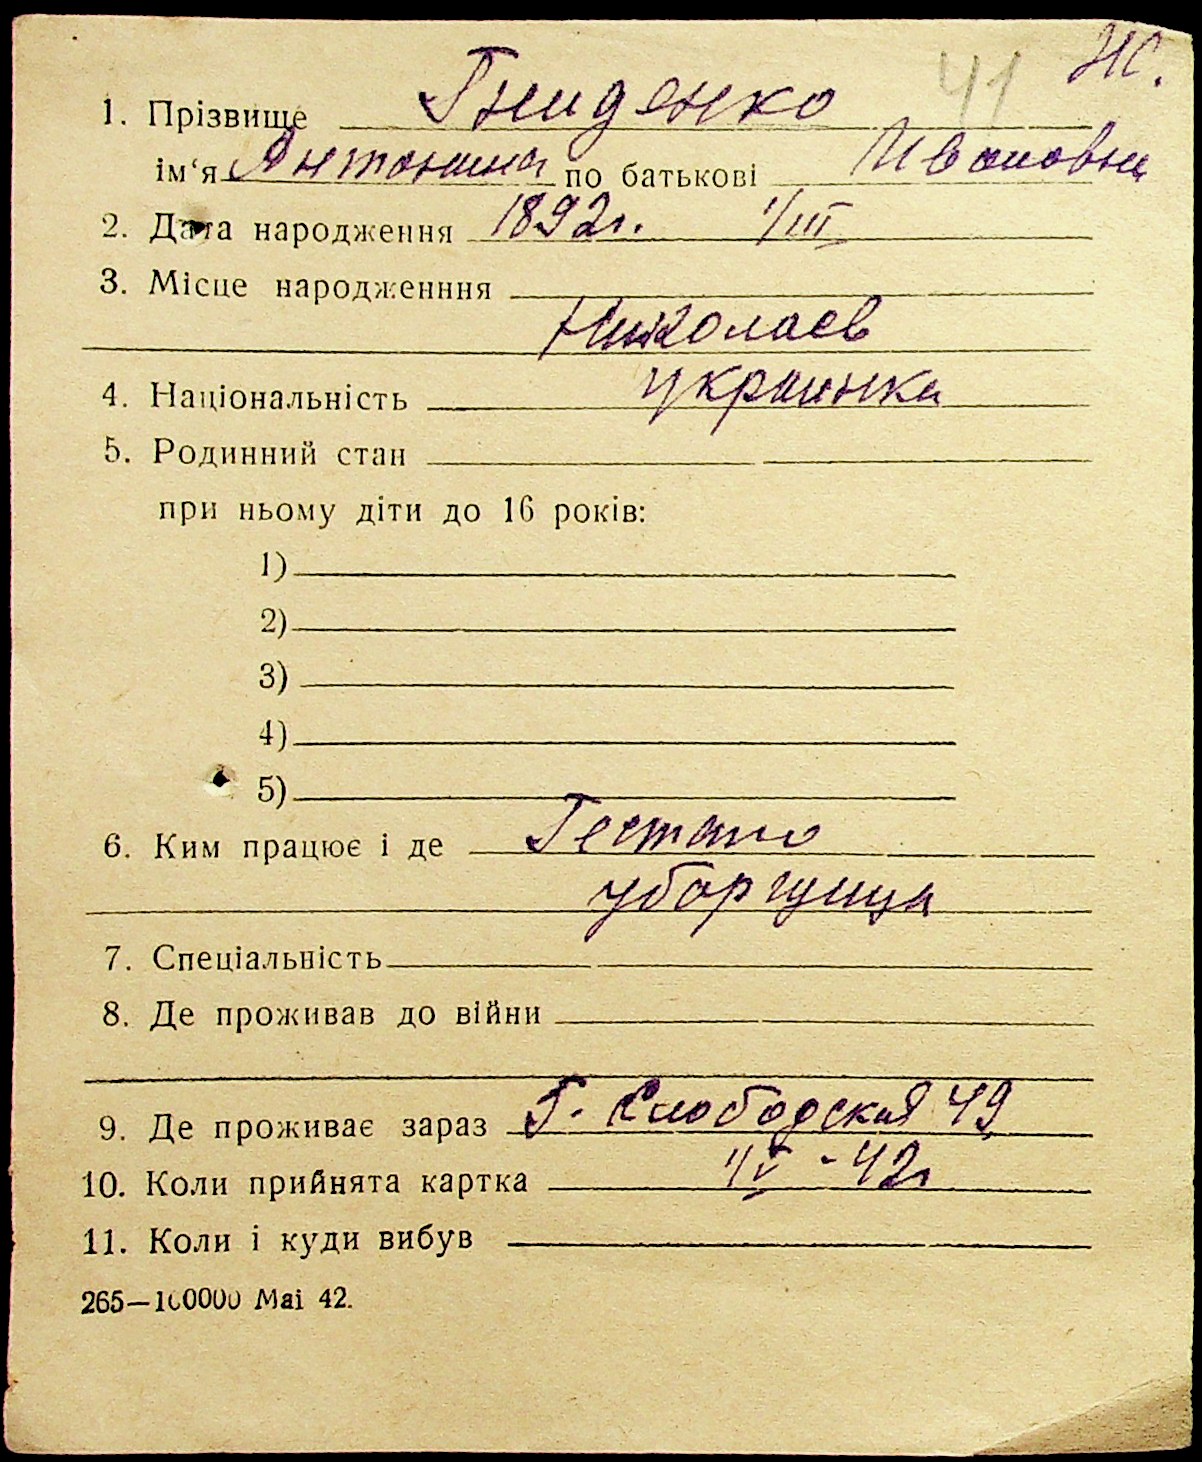 41 Ж.
1. Прізвище Гниденко
ім‘я Антонина по батькові Ивановна
2. Дата народження 1892г. 1/III
3. Місце народженння
Николаев
4. Національність украинка
5. Родинний стан
при ньому діти до 16 років:
1)
2)
3)
4)
5)
6. Ким працює і де Гестапо
уборщица
7. Спеціальність
8. Де проживав до війни
9. Де проживає зараз Слободская 49
10. Коли прийнята картка -42г
11. Коли і куди вибув
265—100000 Mai 42.